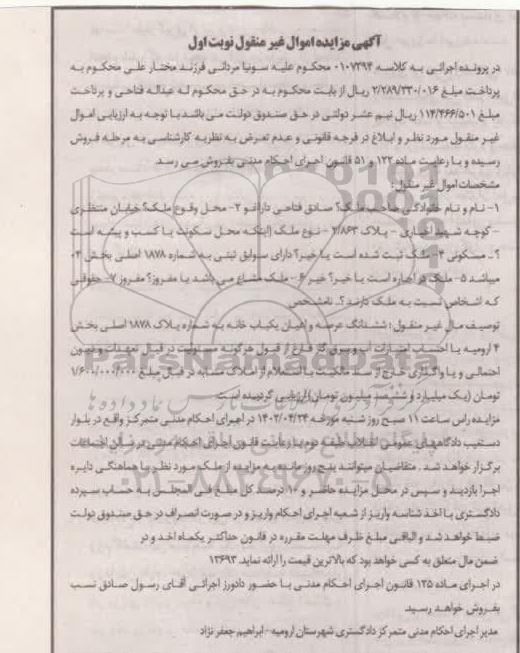 آگهی مزایده اموال غیر منقول نوبت اول
در پرونده اجرائی به کلاسه ۰۱۰۷۳۹۴ محکوم علیه سونیا مردانی فرزند مختار علی محکوم به
پرداخت مبلغ ۲/۲۸۹/۳۳۰/۰۱۶ ریال از بابت محکوم به در حق محکوم له عداله فتاحی و پرداخت
مبلغ ۱۱۴/۴۶۶/۵۰۱ ریال نیم عشر دولتی در حق صندوق دولت می باشد با توجه به ارزیابی اموال
غیر منقول مورد نظر و ابلاغ در فرجه قانونی و عدم تعرض به نظریه کارشناسی به مرحله فروش
رسیده و با رعایت ماده ۱۲۲ و ۵۱ قانون اجرای احکام مدنی بفروش می رسد
مشخصات اموال غیر منقول:
۱- نام و نام خانوادگی صاحب ملک؟ صادق فتاحی دارانو ۲- محل وقوع ملک؟ خیابان منتظری
- کوچه شهید اخباری - پلاک ۲/۸۶۳ - نوع ملک (اینکه محل سکونت یا کسب و پیشه است
؟ـ مسکونی ۴- ملک ثبت شده است یا خیر؟ دارای سوابق ثبتی به شماره ۱۸۷۸ اصلی بخش ۰۴
میباشد ۵- ملک در اجاره است یا خیر؟ خیر ۶- ملک مشاع می باشد یا مفروز؟ مفروز ۷- حقوقی
که اشخاص نسبت به ملک دارند ؟ـ نامشخص
توصیف مال غیر منقول: ششدانگ عرصه و اعیان یکباب خانه به شماره پلاک ۱۸۷۸ اصلی بخش
۴ ارومیه با احتساب امتیازات آب و برق گاز فارغ از قبول هرگونه مسئولیت در قبال تعهدات و دیون
احتمالی و یا واگذاری خارج از سند مالکیت با استعلام از املاک مشابه در قبال مبلغ ۱/۶۰۰/۰۰۰/۰۰۰
تومان (یک میلیارد و ششصد میلیون تومان) ارزیابی گردیده است
مزایده راس ساعت ۱۱ صبح روز شنبه مورخه ۱۴۰۲/۰۴/۲۴ در اجرای احکام مدنی متمرکز واقع در بلوار
دستغیب دادگاههای عمومی انقلاب طبقه دوم با رعایت قانون اجرای احکام مدنی در سالن اجتماعات
برگزار خواهد شد . متقاضیان میتوانند پنج روز مانده به مزایده از ملک مورد نظر با هماهنگی دایره
اجرا بازدید و سپس در محل مزایده حاضر و ۱۰ درصد کل مبلغ فی المجلس به حساب سپرده
دادگستری با اخذ شناسه واریز از شعبه اجرای احکام واریز و در صورت انصراف در حق صندوق دولت
ضبط خواهد شد و الباقی مبلغ ظرف مهلت مقرره در قانون حداکثر یکماه اخذ و در
ضمن مال متعلق به کسی خواهد بود که بالاترین قیمت را ارائه نماید ۱۳۶۹۳
در اجرای ماده ۱۲۵ قانون اجرای احکام مدنی با حضور دادورز اجرائی آقای رسول صادق نسب
بفروش خواهد رسید
مدیر اجرای احکام مدنی متمرکز دادگستری شهرستان ارومیه - ابراهیم جعفر نژاد
ParsNamadData
۰۲۱-۸۸۳۴۹۶۷۰-۵